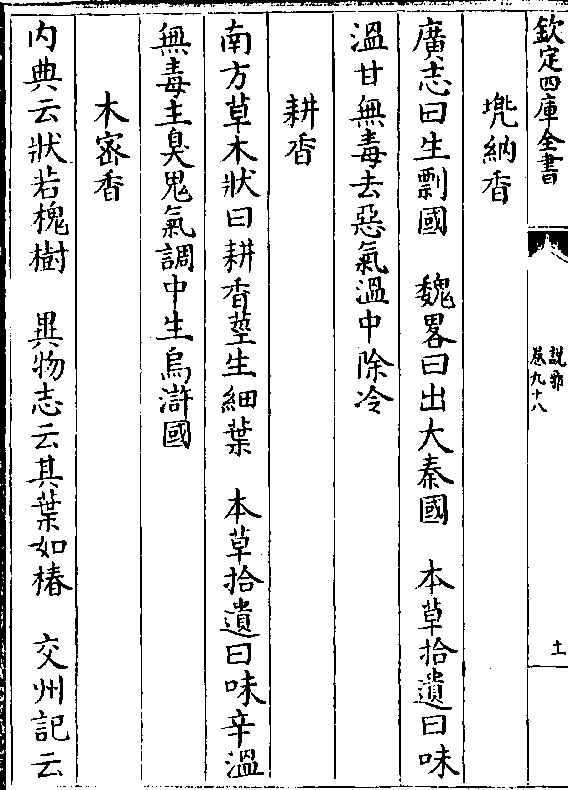 欽定四庫全書
說郛
卷九十八
土
兠納香
廣志曰生剽國　魏畧曰出大秦國　本草拾遺曰味
溫甘無毒去惡氣溫中除冷
耕香
南方草木狀曰耕香莖生細葉　本草拾遺曰味辛溫
無毒主臭鬼氣調中生烏滸國
木宻香
內典云狀若槐樹　異物志云其葉如椿　交州記云